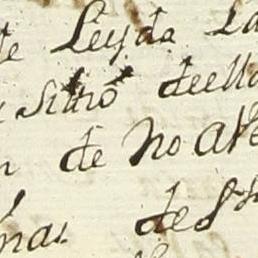 de Leyda La
y sitio deella
n de no ave
nas de Sn